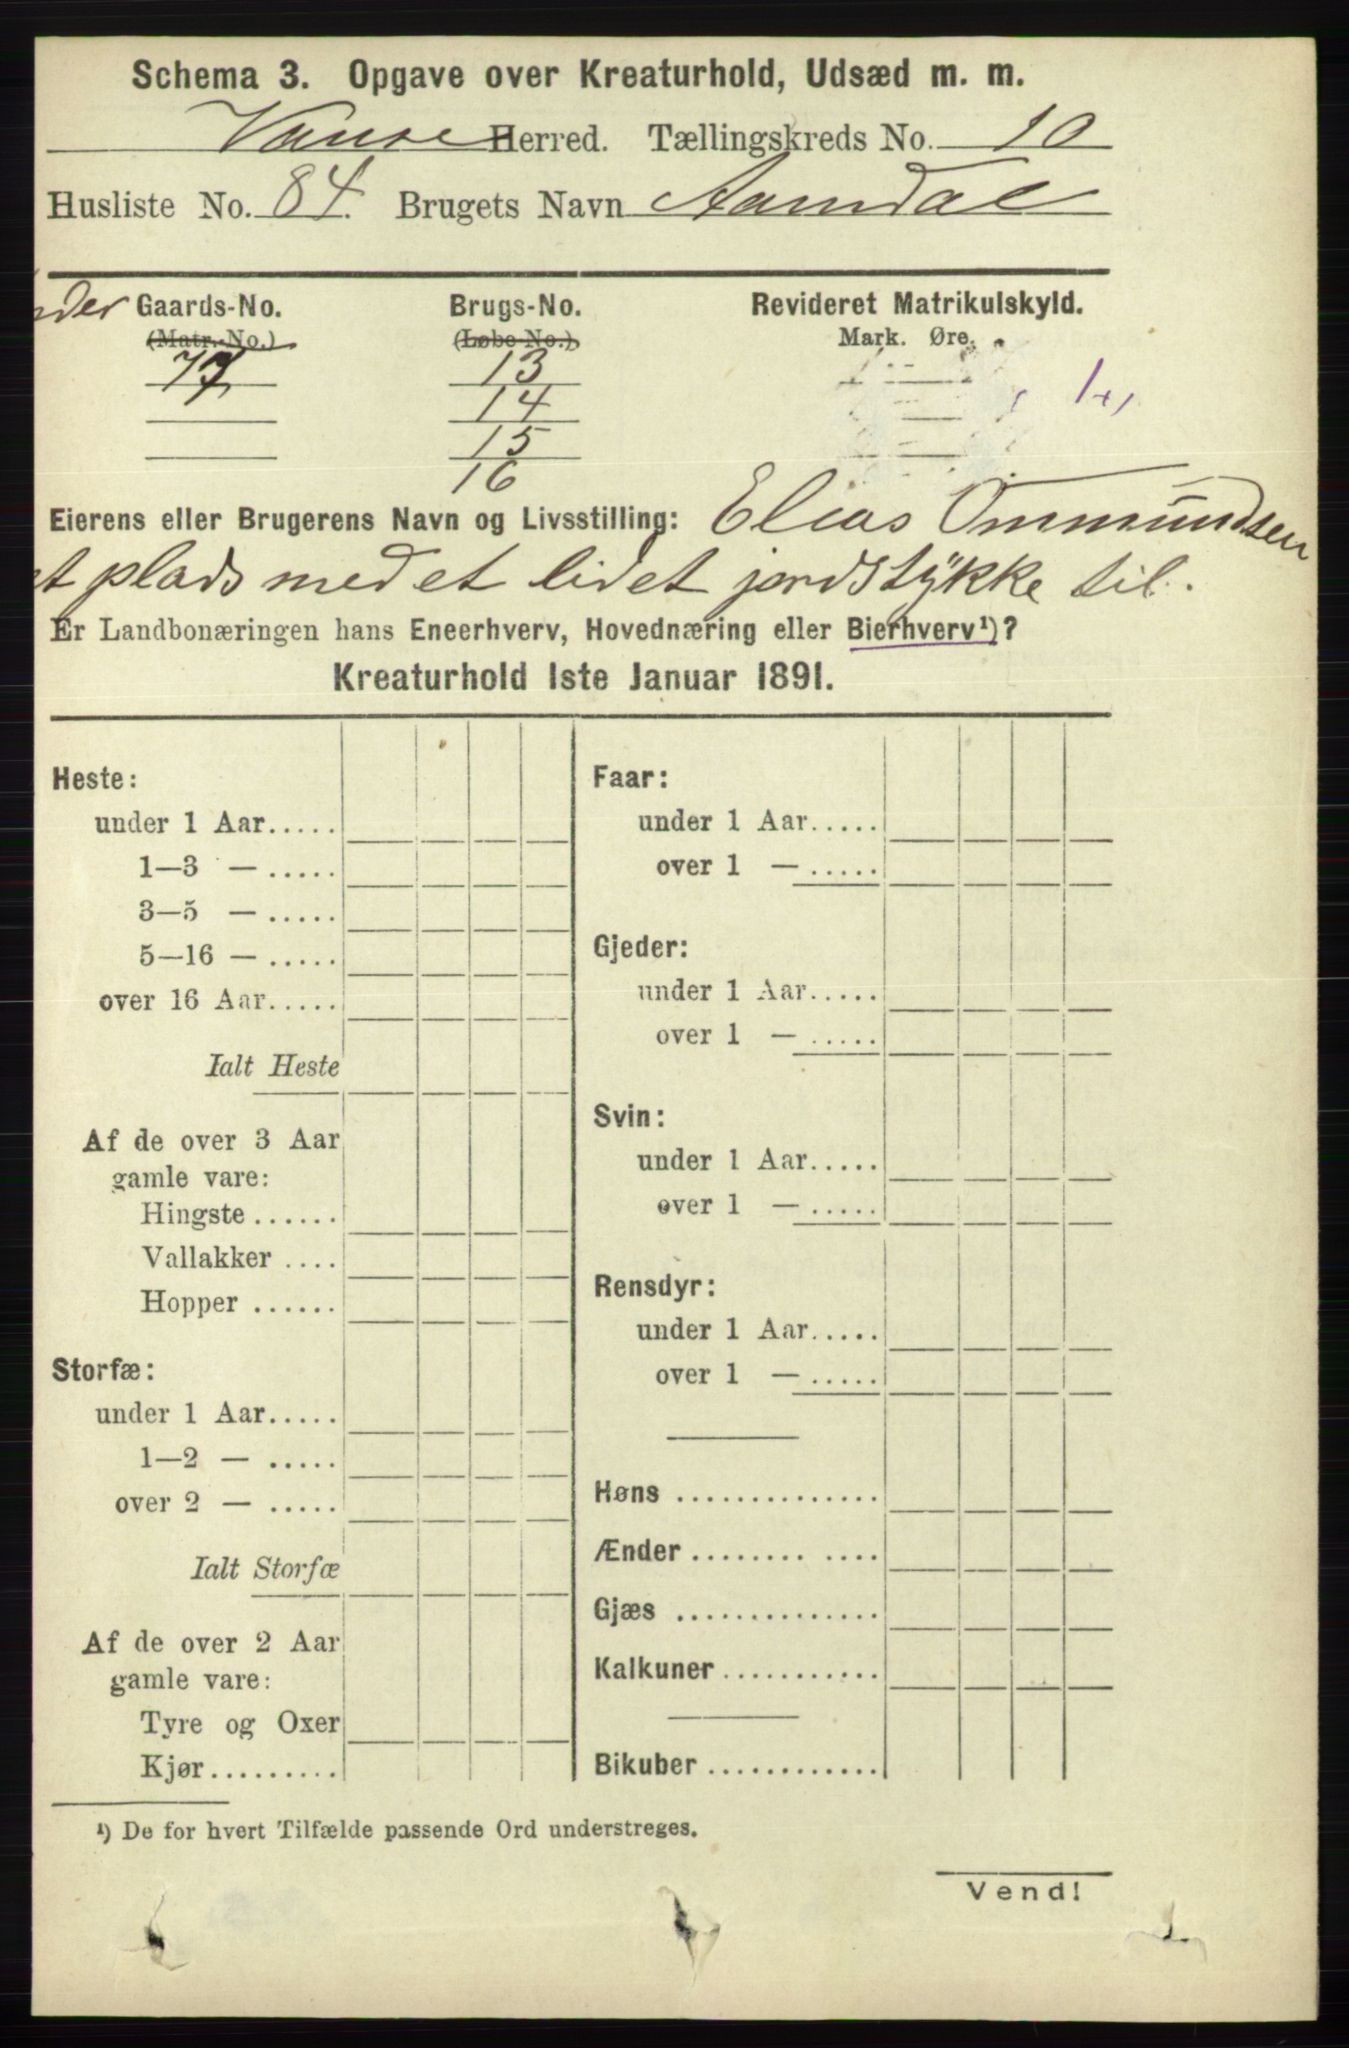 Schema 3. Opgave over Kreaturhold, Udsæd m. m.
Vanse Herred. Tællingskreds No. 10
Husliste No. 84. Brugets Navn Aamdal
Gaards-No. Brugs-No. Revideret Matrikulskyld.
(Matr.-No.) (Løbe-No.) Mark. Øre.
77 13
14
15
16
Eierens eller Brugerens Navn og Livsstilling: Elias Ommundsen
et plads med et lidet jordstykke til.
Er Landbonæringen hans Eneerhverv, Hovednæring eller Bierhverv¹)?
Kreaturhold 1ste Januar 1891.
Heste:
under 1 Aar.....
1—3 — .....
3—5 — .....
5—16 — .....
over 16 Aar.....
Ialt Heste
Af de over 3 Aar
gamle vare:
Hingste ......
Vallakker ....
Hopper ......
Storfæ:
under 1 Aar.....
1—2 — .....
over 2 — .....
Ialt Storfæ
Af de over 2 Aar
gamle vare:
Tyre og Oxer
Kjør.........
Faar:
under 1 Aar.....
over 1 — .....
Gjeder:
under 1 Aar.....
over 1 — .....
Svin:
under 1 Aar.....
over 1 — .....
Rensdyr:
under 1 Aar.....
over 1 — .....
Høns ..............
Ænder ........ ....
Gjæs ..............
Kalkuner...........
Bikuber ............
¹) De for hvert Tilfælde passende Ord understreges.
Vend!